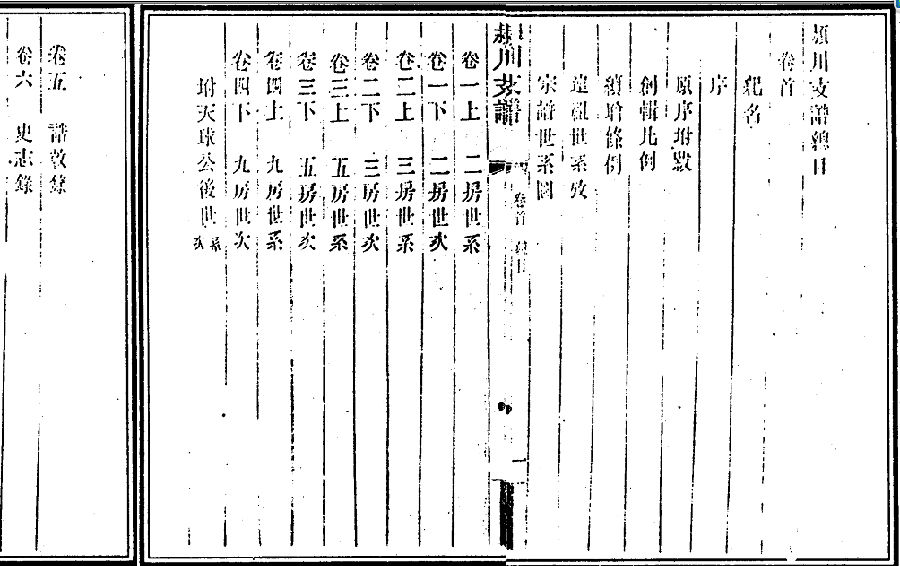 潁川支譜總目
卷首

名
序
原序附數
創輯凡例
續增條例
遠祖世系攷
宗譜世系圖
潁川支譜
卷首 總目
一
卷一上 二房世系
卷一下 二房世次
卷二上 三房世系
卷二下 三房世次
卷三上 五房世系
卷三下 五房世次
卷四上 九房世系
卷四下 九房世次
附天球公後世系次
卷五 譜敘錄
卷六 史志錄